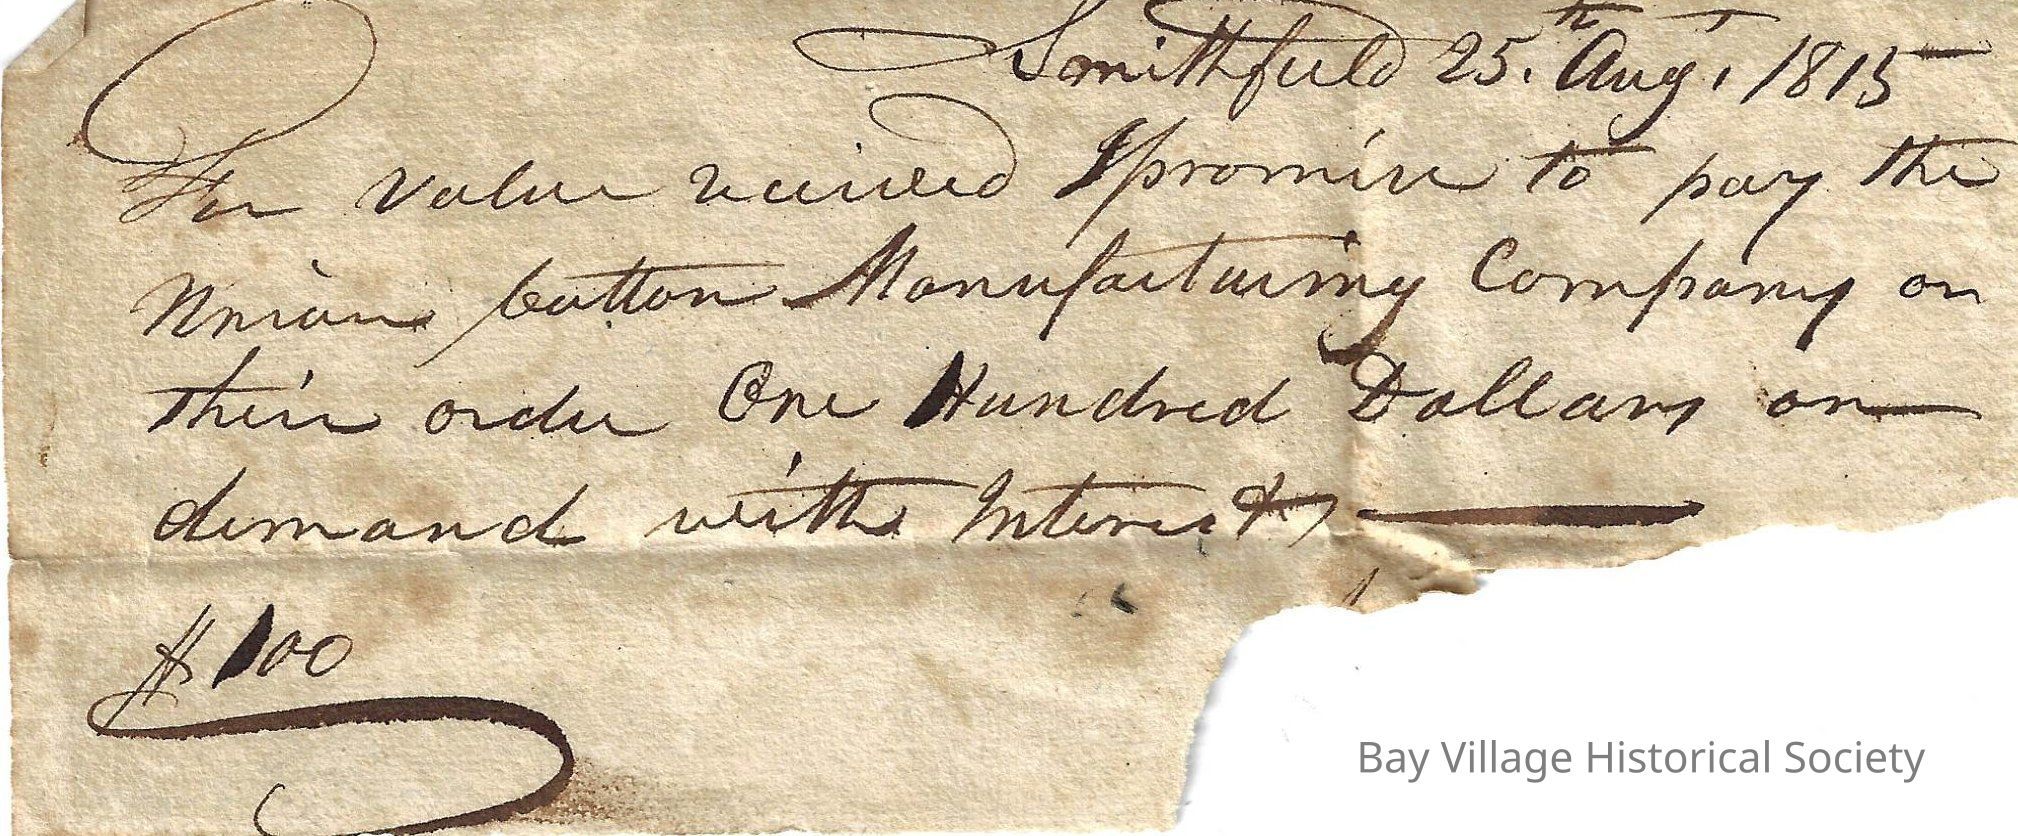 Smithfield 25.th Aug.t 1815
For value received I promise to pay the
Union button Manufacturing Company or
their order One Hundred Dollars on
demand with Interest
$100
Bay Village Historical Society